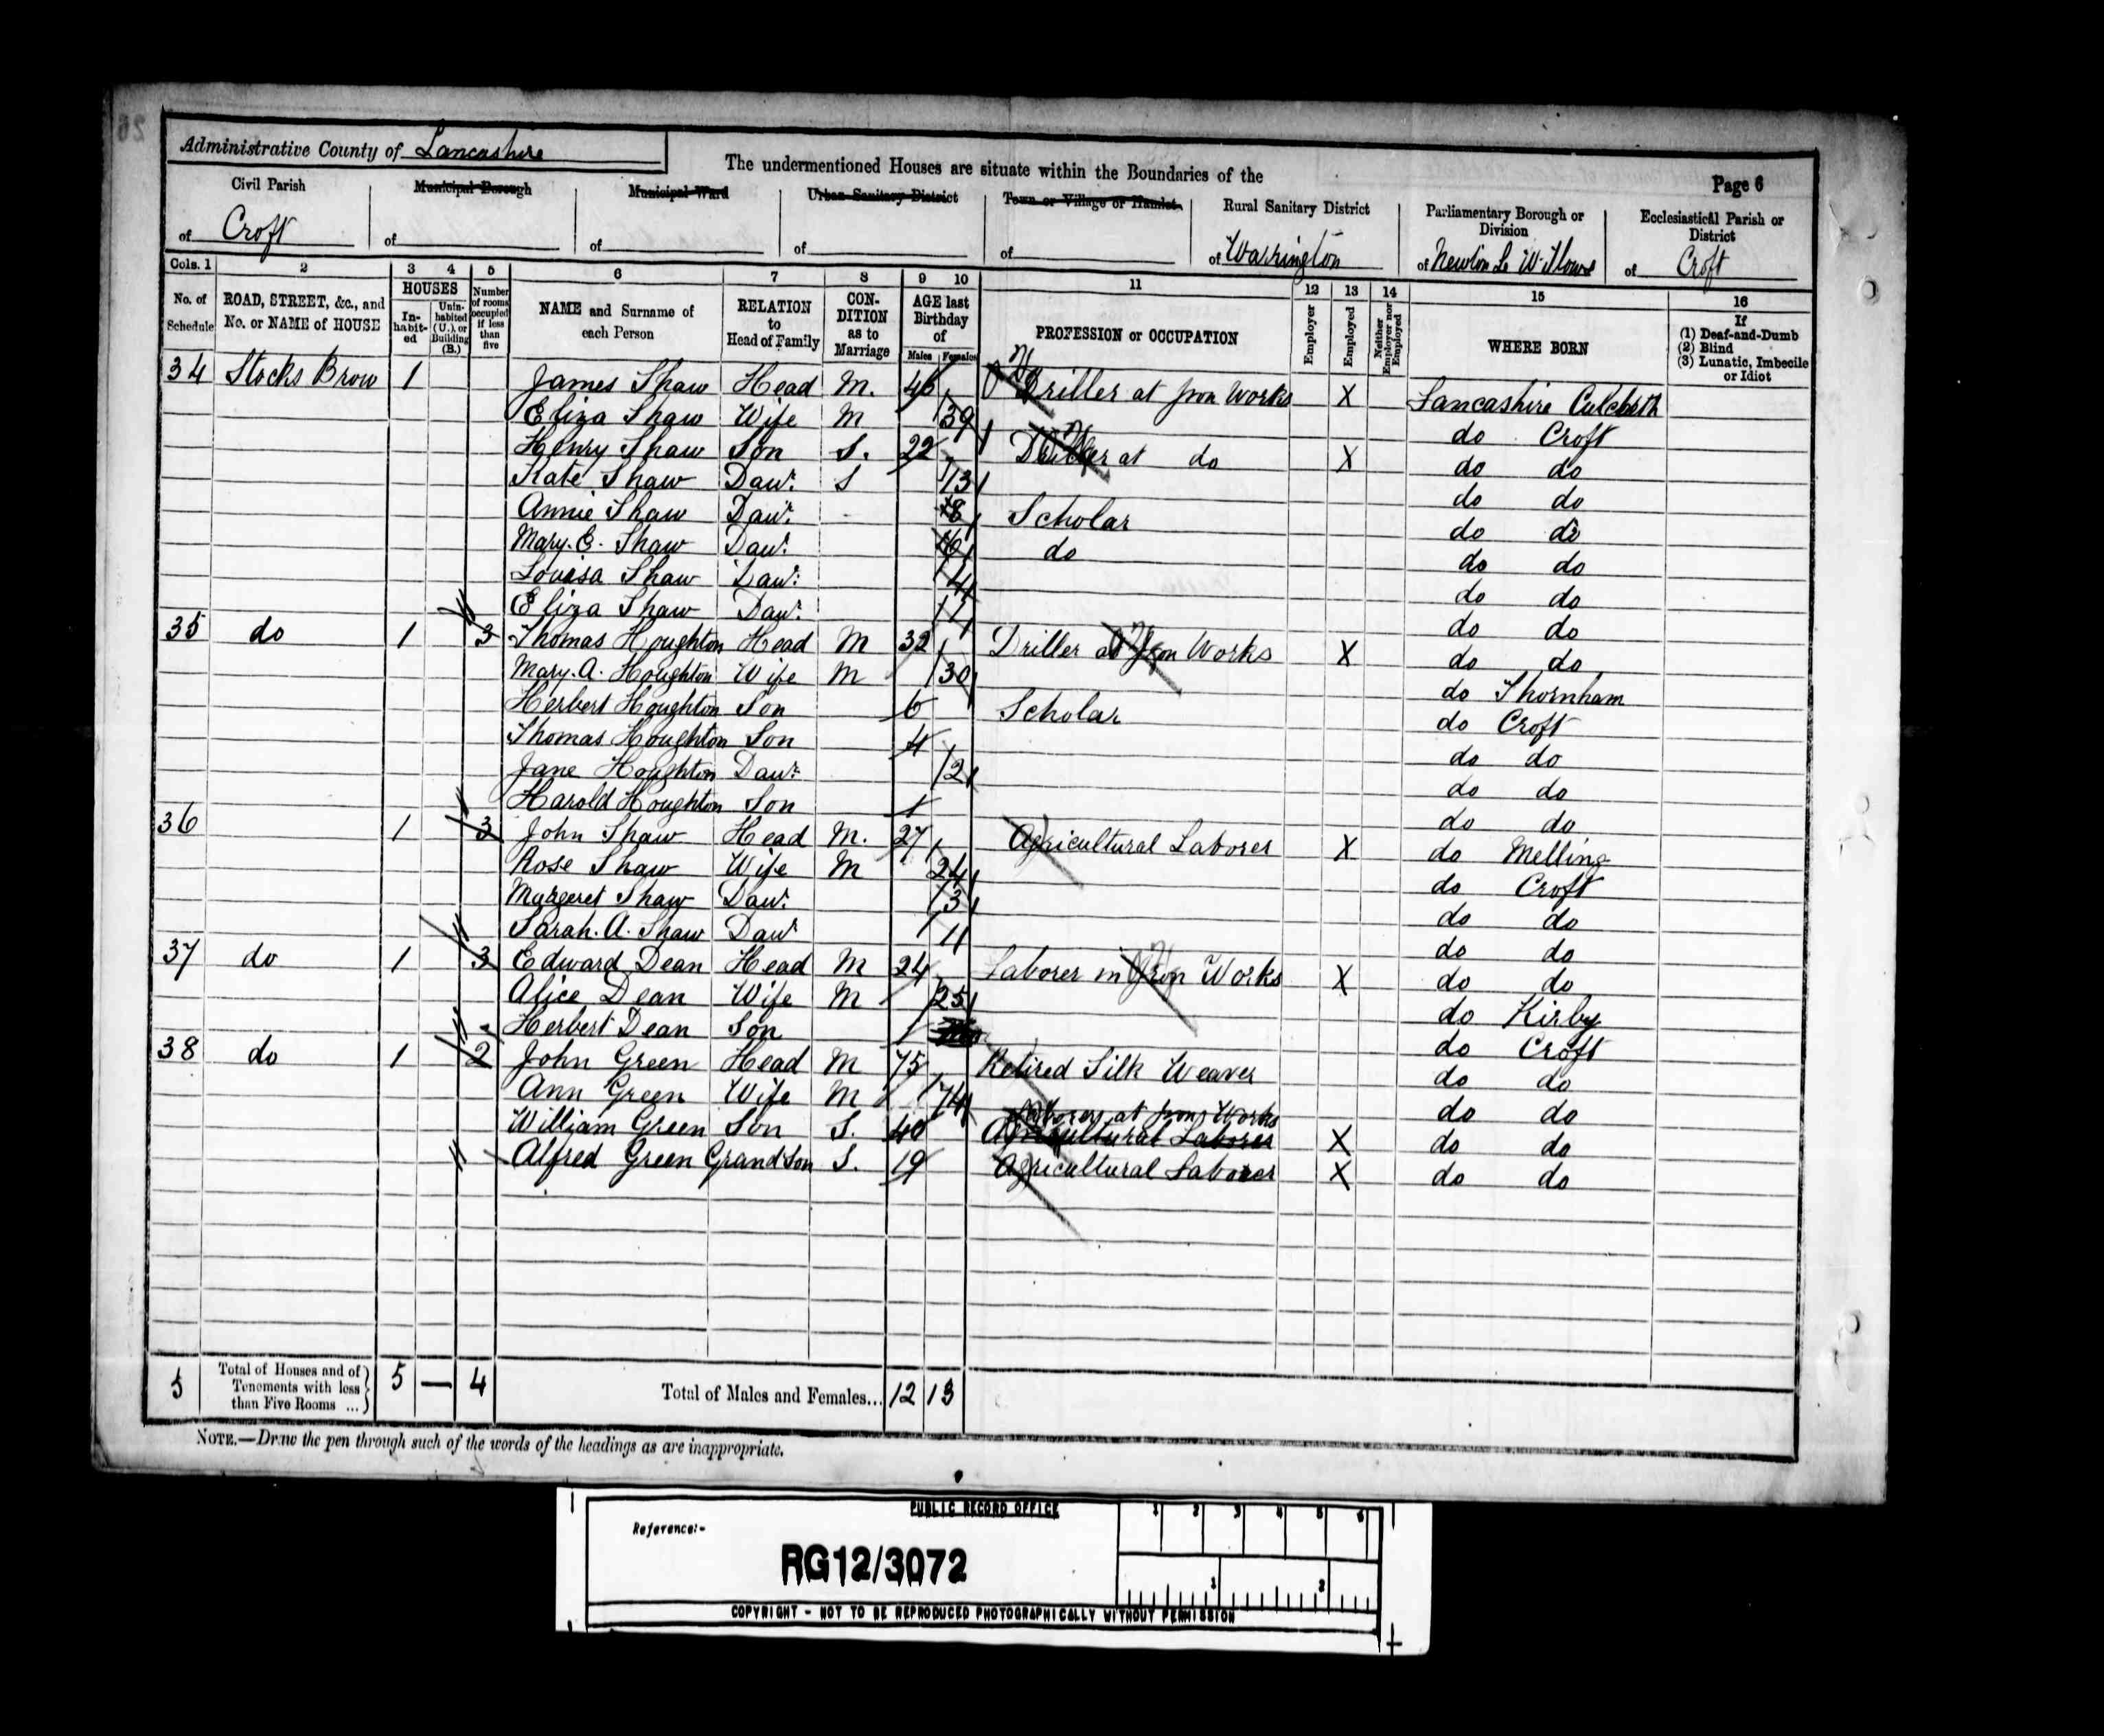 Administrative County of Lancashire
The undermentioned Houses are situate within the Boundaries of the
Page 6
Civil Parish of Croft
Municipal Borough of
Municipal Ward of
Urban Sanitary District of
Town or Village or Hamlet of
Rural Sanitary District of Warrington
Parliamentary Borough or Division of Newton Le Willows
Ecclesiastical Parish or District of Croft
Cols. 1 2 3 4 5 6 7 8 9 10 11 12 13 14 15 16
No. of Schedule
ROAD, STREET, &c., and No. or NAME of HOUSE
HOUSES
In-habit-ed
Unin-habited (U.), or Building (B.)
Number of rooms occupied if less than five
NAME and Surname of each Person
RELATION to Head of Family
CON-DITION as to Marriage
AGE last Birthday of
Males Females
PROFESSION or OCCUPATION
Employer
Employed
Neither Employer nor Employed
WHERE BORN
If (1) Deaf-and-Dumb (2) Blind (3) Lunatic, Imbecile or Idiot
34 Stocks Brow 1 James Shaw Head M. 46 Driller at Iron Works X Lancashire Culcheth
Eliza Shaw Wife M 39 do Croft
Henry Shaw Son S. 22 Driller at do X do do
Kate Shaw Daur. S 13 do do
Annie Shaw Daur. 8 Scholar do do
Mary. E. Shaw Daur. do do do
Louisa Shaw Daur. 4 do do
Eliza Shaw Daur. do do
35 do 1 3 Thomas Houghton Head M 32 Driller at Iron Works X do do
Mary. A. Houghton Wife M 30 do Thornham
Herbert Houghton Son 6 Scholar do Croft
Thomas Houghton Son 4 do do
Jane Houghton Daur. 2 do do
Harold Houghton Son 1 do do
36 1 3 John Shaw Head M. 27 Agricultural Laborer X do Melling
Rose Shaw Wife M 24 do Croft
Margeret Shaw Daur. 3 do do
Sarah. A. Shaw Daur do do
37 do 1 3 Edward Dean Head M 24 Laborer in Iron Works X do do
Alice Dean Wife M 25 do Kirby
Herbert Dean Son do Croft
38 do 1 2 John Green Head M 75 Retired Silk Weaver do do
Ann Green Wife M 74 do do
Laborer at Iron Works
William Green Son S. 40 Agricultural Laborer X do do
Alfred Green GrandSon S. 19 Agricultural Laborer X do do
5 Total of Houses and of Tenements with less than Five Rooms ... 5 — 4 Total of Males and Females... 12 13
NOTE.—Draw the pen through such of the words of the headings as are inappropriate.
PUBLIC RECORD OFFICE
1 2 3 4 5 6
Reference:-
RG12/3072
1 2
COPYRIGHT - NOT TO BE REPRODUCED PHOTOGRAPHICALLY WITHOUT PERMISSION